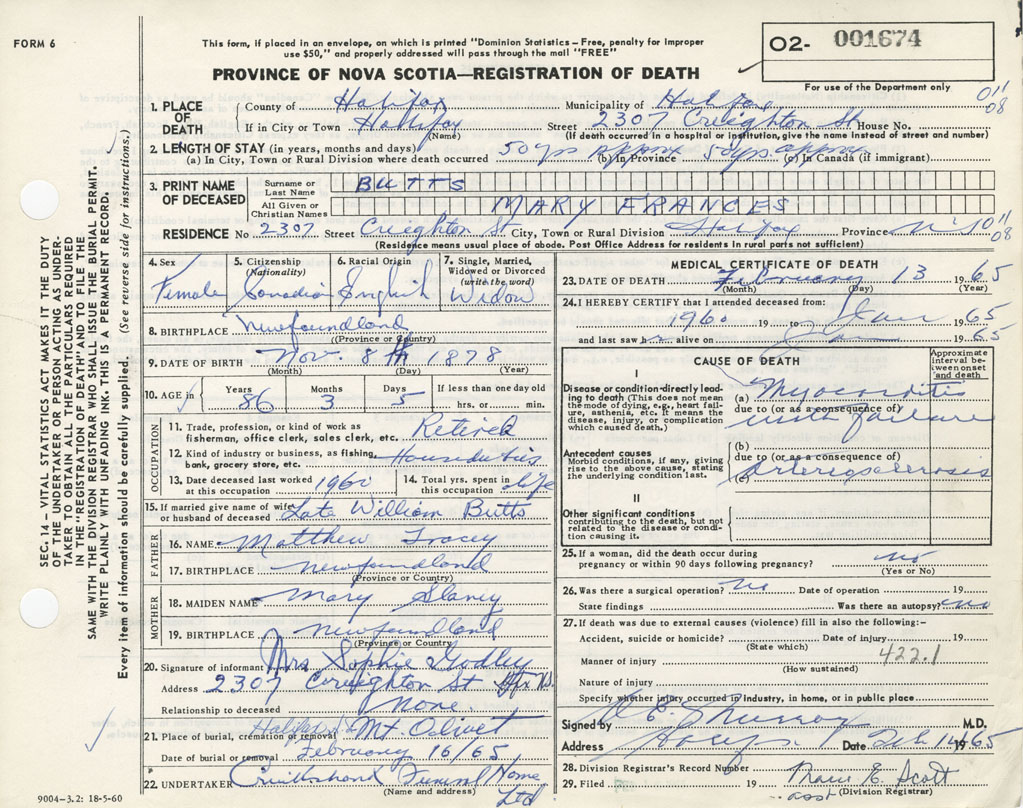 FORM 6
This form, if placed in an envelope, on which is printed "Dominion Statistics – Free, penalty for improper
use $50," and properly addressed will pass through the mail "FREE"
PROVINCE OF NOVA SCOTIA—REGISTRATION OF DEATH
02- 001674
For use of the Department only
SEC. 14 – VITAL STATISTICS ACT MAKES IT THE DUTY
OF THE UNDERTAKER OR PERSON ACTING AS UNDER-
TAKER TO OBTAIN ALL THE PARTICULARS REQUIRED
IN THE "REGISTRATION OF DEATH" AND TO FILE THE
SAME WITH THE DIVISION REGISTRAR WHO SHALL ISSUE THE BURIAL PERMIT.
WRITE PLAINLY WITH UNFADING INK. THIS IS A PERMANENT RECORD.
Every item of information should be carefully supplied. (See reverse side for instructions.)
1. PLACE OF DEATH County of Halifax Municipality of Halifax 011 08
If in City or Town Halifax (Name) Street 2307 Creighton St House No.
(If death occurred in a hospital or institution, give the name instead of street and number)
2. LENGTH OF STAY (in years, months and days)
(a) In City, Town or Rural Division where death occurred 50 yrs approx (b) In Province 50 yrs approx (c) In Canada (if immigrant)
3. PRINT NAME OF DECEASED Surname or Last Name BUTTS
All Given or Christian Names MARY FRANCES
RESIDENCE No 2307 Street Creighton St City, Town or Rural Division Halifax Province N S 011 08
(Residence means usual place of abode. Post Office Address for residents in rural parts not sufficient)
4. Sex Female
5. Citizenship (Nationality) Canadian
6. Racial Origin English
7. Single, Married, Widowed or Divorced (write the word) Widow
8. BIRTHPLACE Newfoundland
(Province or Country)
9. DATE OF BIRTH Nov. 8th 1878
(Month) (Day) (Year)
10. AGE in Years 86 Months 3 Days 5 If less than one day old hrs. or min.
OCCUPATION
11. Trade, profession, or kind of work as
fisherman, office clerk, sales clerk, etc. Retired
12. Kind of industry or business, as fishing,
bank, grocery store, etc. Housedutie​s
13. Date deceased last worked at this occupation 1960
14. Total yrs. spent in this occupation life
15. If married give name of wife
or husband of deceased Late William Butts
FATHER
16. NAME Matthew Tracey
17. BIRTHPLACE Newfoundland
(Province or Country)
MOTHER
18. MAIDEN NAME Mary Slaney
19. BIRTHPLACE Newfoundland
(Province or Country)
20. Signature of informant Mrs Sophie Godley
Address 2307 Creighton St Hfx N.S.
Relationship to deceased None
21. Place of burial, cremation or removal Halifax Mt. Olivet
Date of burial or removal February 16/65
22. UNDERTAKER Cruikshank Funeral Home Ltd
(Name and address)
9004–3.2: 18-5-60
MEDICAL CERTIFICATE OF DEATH
23. DATE OF DEATH February 13 1965
(Month) (Day) (Year)
24. I HEREBY CERTIFY that I attended deceased from:
1960 19 to Jan 1965
and last saw h alive on Jan 1965
CAUSE OF DEATH
Approximate interval between onset and death
I
Disease or condition directly lead-
ing to death (This does not mean
the mode of dying, e.g., heart fail-
ure, asthenia, etc. It means the
disease, injury, or complication
which caused death.)
(a) Myocarditis
due to (or as a consequence of)
with failure
Antecedent causes
Morbid conditions, if any, giving
rise to the above cause, stating
the underlying condition last.
(b)
due to (or as a consequence of)
(c) Arteriosclerosis
II
Other significant conditions
contributing to the death, but not
related to the disease or condi-
tion causing it.
25. If a woman, did the death occur during
pregnancy or within 90 days following pregnancy? No
(Yes or No)
26. Was there a surgical operation? No Date of operation 19
State findings Was there an autopsy? No
27. If death was due to external causes (violence) fill in also the following:–
Accident, suicide or homicide? Date of injury 19
(State which)
422.1
Manner of injury
(How sustained)
Nature of injury
Specify whether injury occurred in industry, in home, or in public place
Signed by Murray M.D.
Address Date Feb 1965
28. Division Registrar's Record Number
29. Filed 19 E. Scott
asst (Division Registrar)